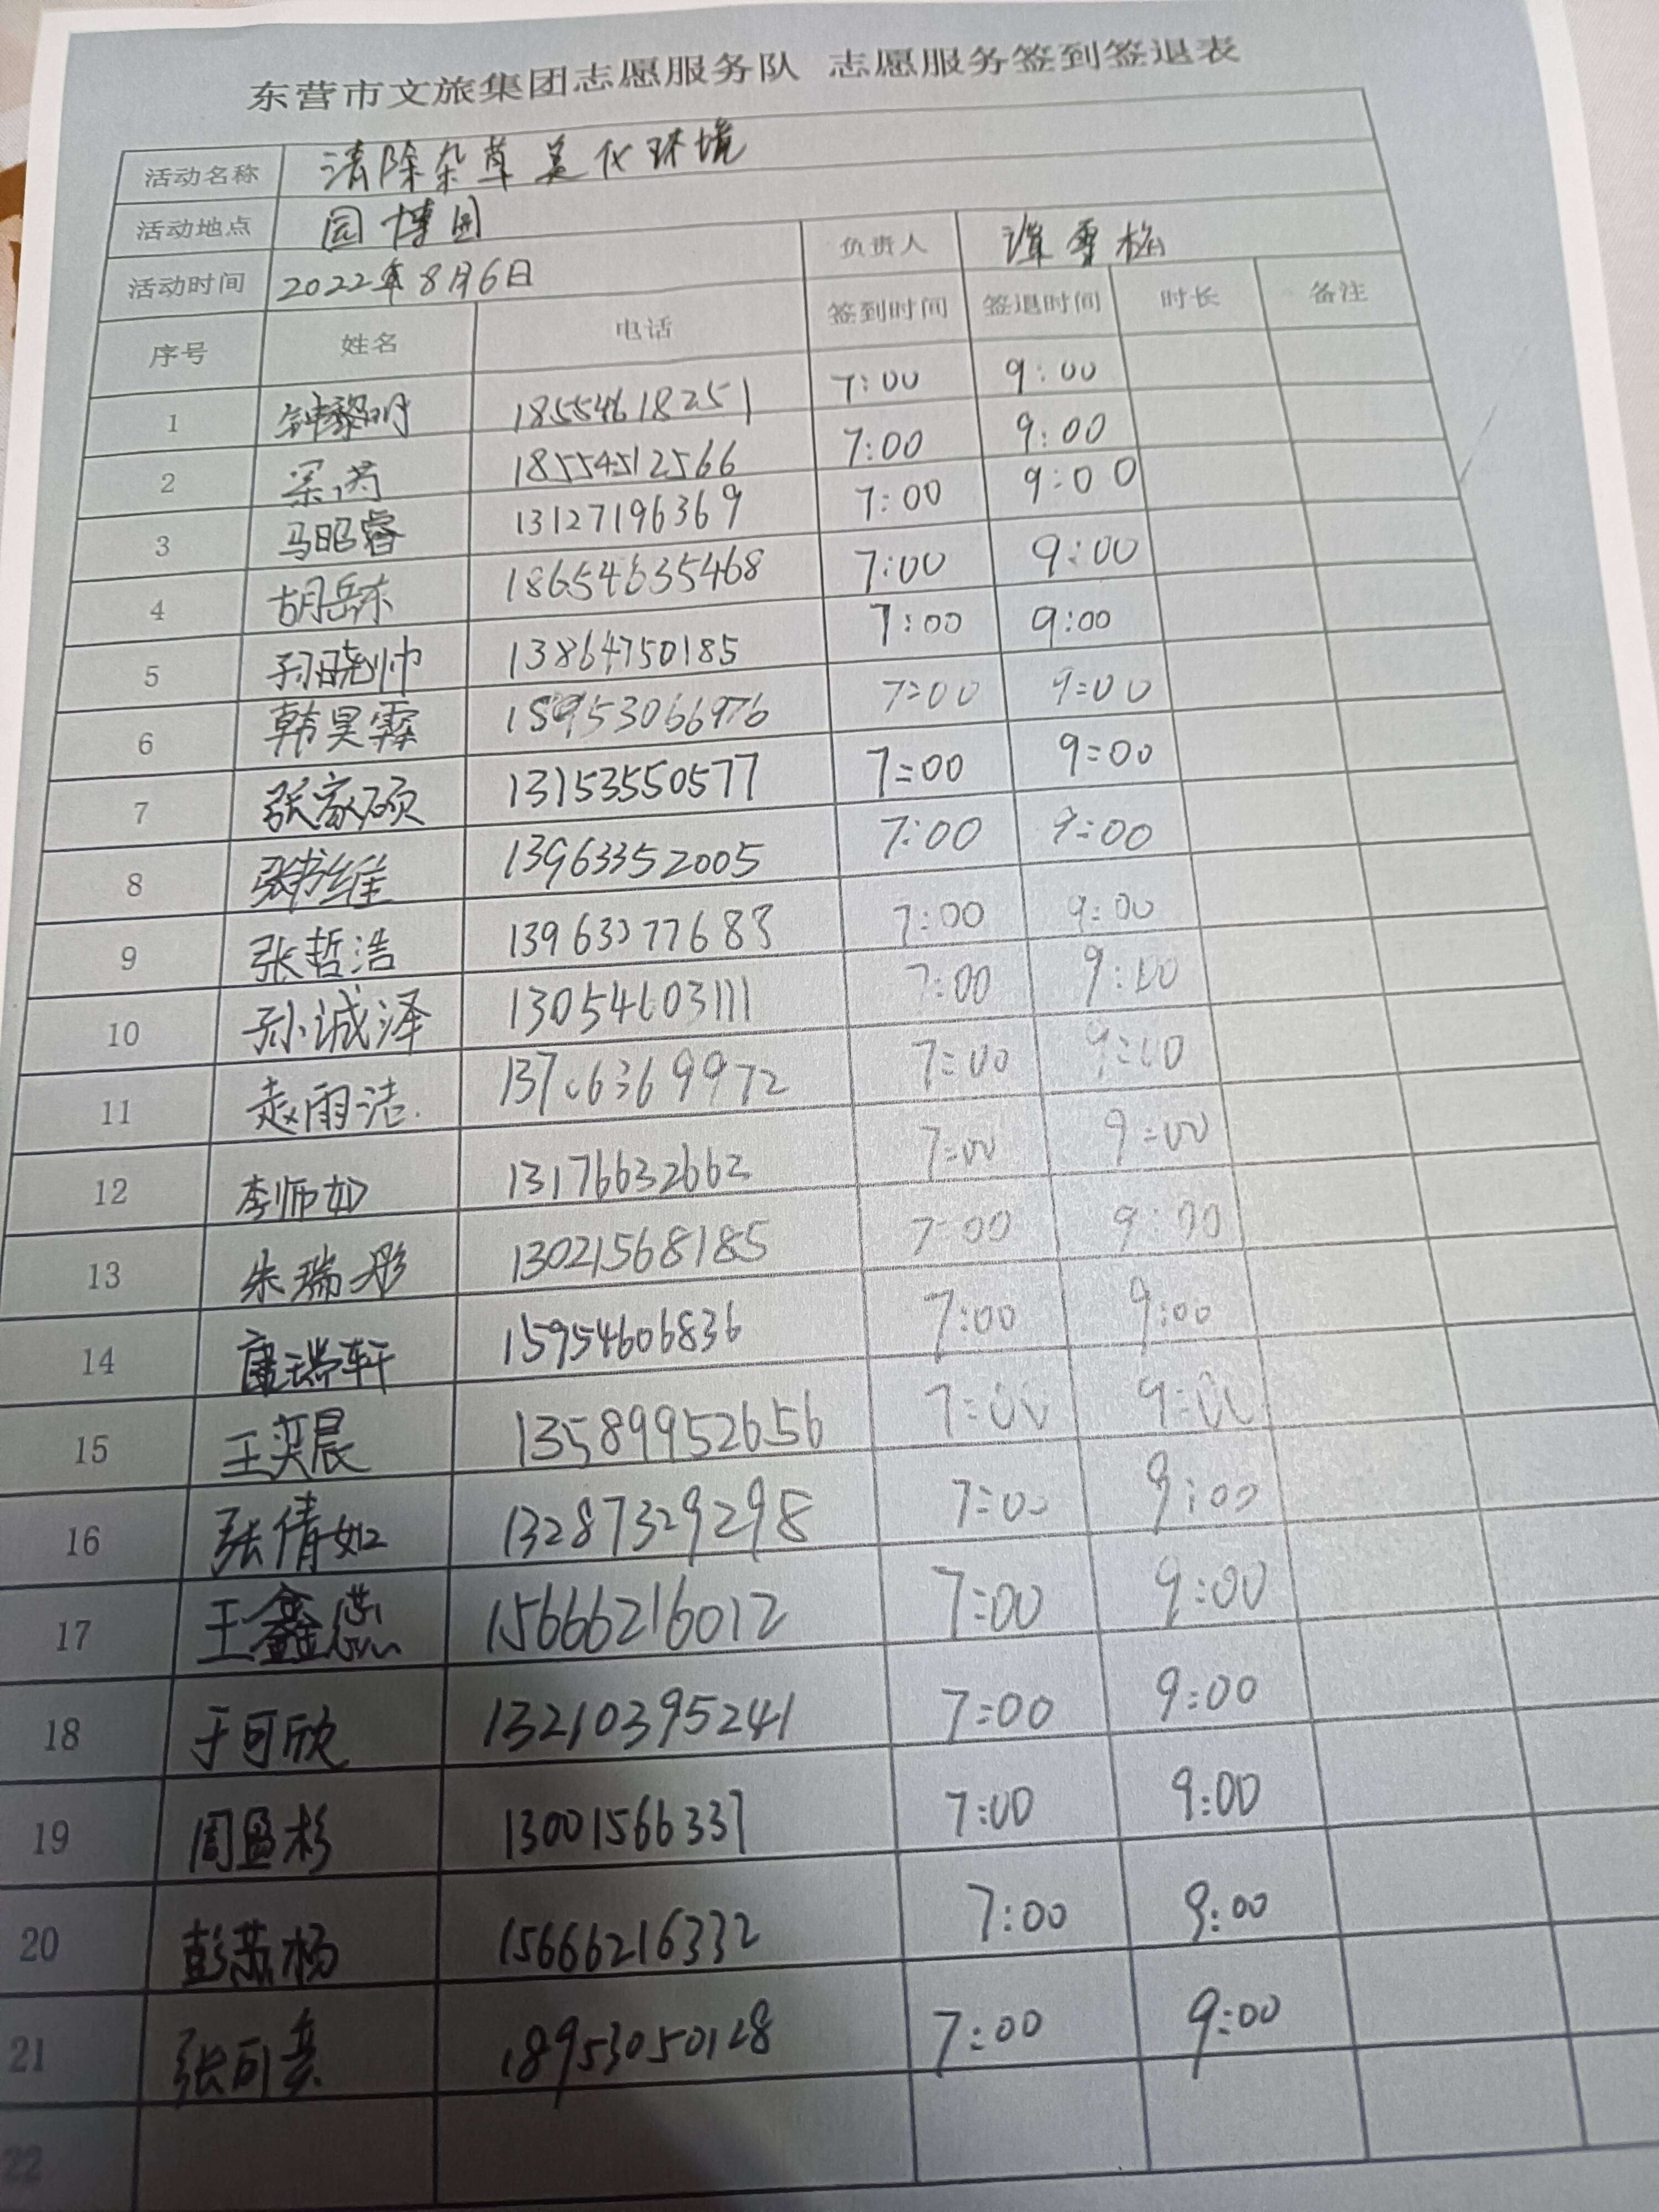 东营市文旅集团志愿服务队 志愿服务签到签退表
活动名称 清除杂草美化环境
活动地点 园博园 负责人 谭雪梅
活动时间 2022年8月6日
序号 姓名 电话 签到时间 签退时间 时长 备注
1 钟黎明 18554618251 7:00 9:00
2 18554512566 7:00 9:00
3 马昭睿 13127196369 7:00 9:00
4 胡岳东 18654635468 7:00 9:00
5 孙晓帅 13864750185 7:00 9:00
6 韩昊霖 7:00 9:00
7 张家硕 13153550577 7:00 9:00
8 张书维 13963352005 7:00 9:00
9 张哲浩 13963377683 7:00 9:00
10 孙诚泽 13054603111 7:00 9:00
11 赵雨洁 13706369972 7:00 9:00
12 李师如 13176632662 7:00 9:00
13 朱瑞彤 13021568185 7:00 9:00
14 康瑞轩 15954606836 7:00 9:00
15 王奕晨 13589952656 7:00 9:00
16 张倩如 13287329298 7:00 9:00
17 王鑫蕊 15666216012 7:00 9:00
18 于可欣 13210395241 7:00 9:00
19 周盈杉 13001566337 7:00 9:00
20 彭燕杨 15666216332 7:00 9:00
21 张可 18953050128 7:00 9:00
22